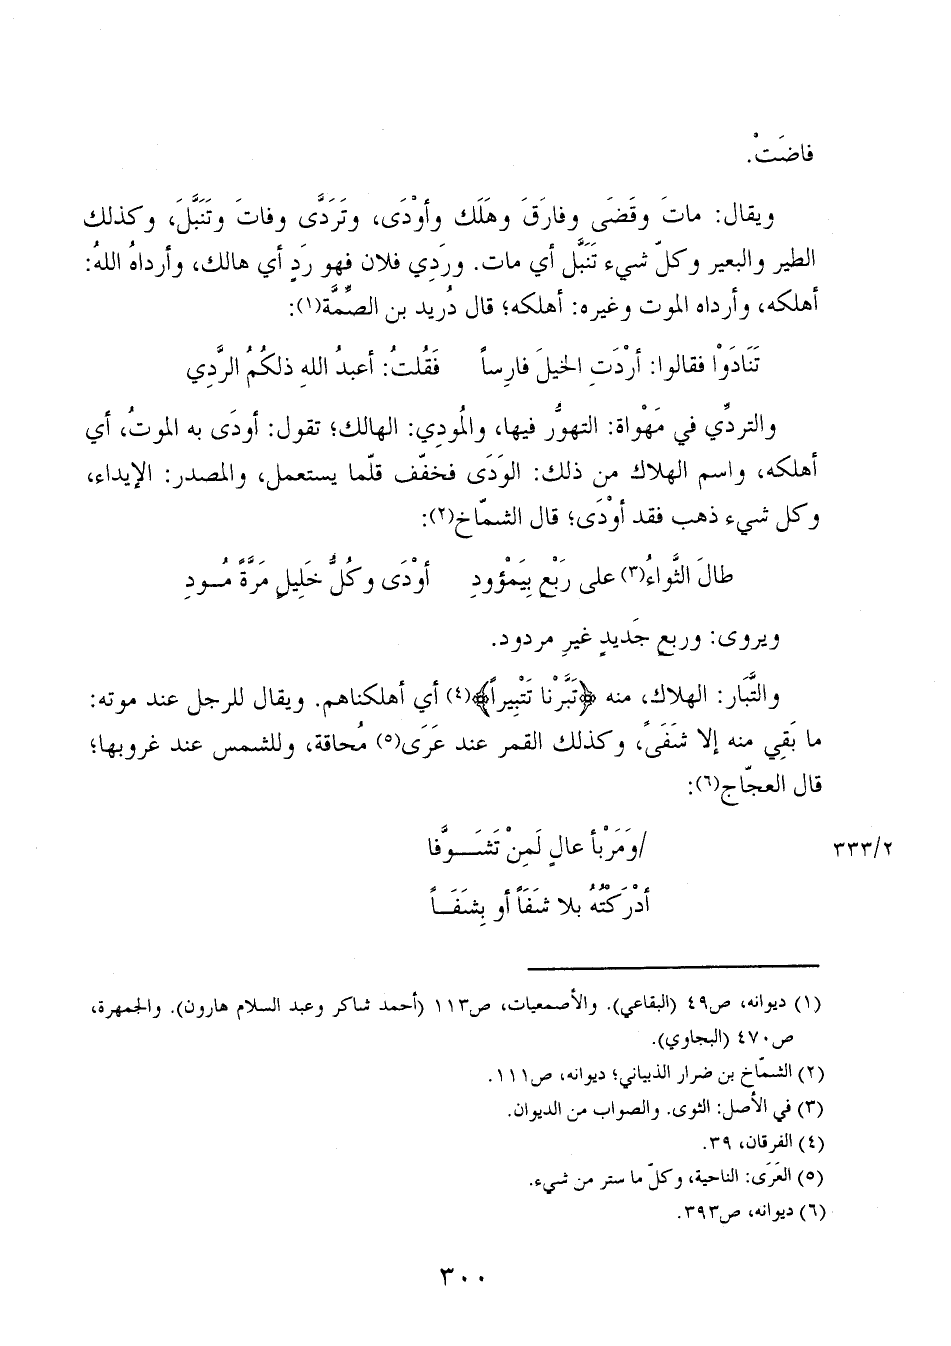 فاضَتْ.
ويقال: ماتَ وقَضَى وفارَقَ وهَلَك وأوْدَى، وتَرَدَّى وفاتَ وتَنَبَّلَ، وكذلك
الطير والبعير وكلّ شيء تَنَبَّل أي مات. ورَدِي فلان فهو رَدٍ أي هالك، وأرداهُ اللهُ:
أهلكه، وأرداه الموت وغيره: أهلكه؛ قال دُريد بن الصِّمَّة(١):
تَنَادَوْا فقالوا: أرْدَتِ الخيلَ فارِساً فَقُلتُ: أعبدُ اللهِ ذلكُمُ الرَّدِي
والتردِّي في مَهْواة: التهوُّر فيها، والمُودِي: الهالك؛ تقول: أودَى به الموتُ، أي
أهلكه، واسم الهلاك من ذلك: الوَدَى فخفّف قلّما يستعمل، والمصدر: الإيداء،
وكل شيء ذهب فقد أوْدَى؛ قال الشمّاخ(٢):
طالَ الثَّواءُ(٣) على رَبْعٍ بِيَمْؤودِ أوْدَى وكُلُّ خَلِيلٍ مَرَّةً مُـودِ
ويروى: وربعٍ جَديدٍ غيرِ مردود.
والتَّبَار: الهلاك، منه ﴿تَبَّرْنا تَتْبِيراً﴾(٤) أي أهلكناهم. ويقال للرجل عند موته:
ما بَقِي منه إلا شَفَىً، وكذلك القمر عند عَرَى(٥) مُحاقة، وللشمس عند غروبها؛
قال العجّاج(٦):
/ومَرْبأ عالٍ لَمِنْ تَشَـوَّفا
٣٣٣/٢
أدْرَكْتُهُ بلا شَفَاً أو بِشَفَـاً
(١) ديوانه، ص٤٩ (البقاعي). والأصمعيات، ص١١٣ (أحمد شاكر وعبد السلام هارون). والجمهرة،
ص٤٧٠ (البجاوي).
(٢) الشمّاخ بن ضرار الذبياني؛ ديوانه، ص١١١.
(٣) في الأصل: الثوى. والصواب من الديوان.
(٤) الفرقان، ٣٩.
(٥) العَرَى: الناحية، وكلّ ما ستر من شيء.
(٦) ديوانه، ص٣٩٣.
٣٠٠